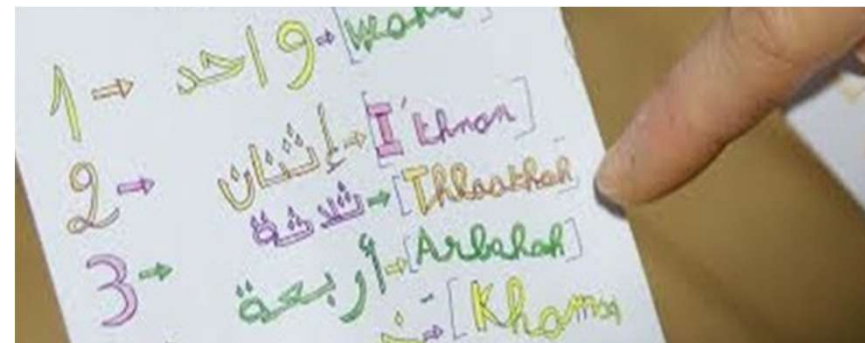 1 → واحد → [Wahi
2 → إثنان → [I'thnan]
ثلاثة → [Thlaathah]
3 → أربعة → [Arbahah]
→ [Khamsa